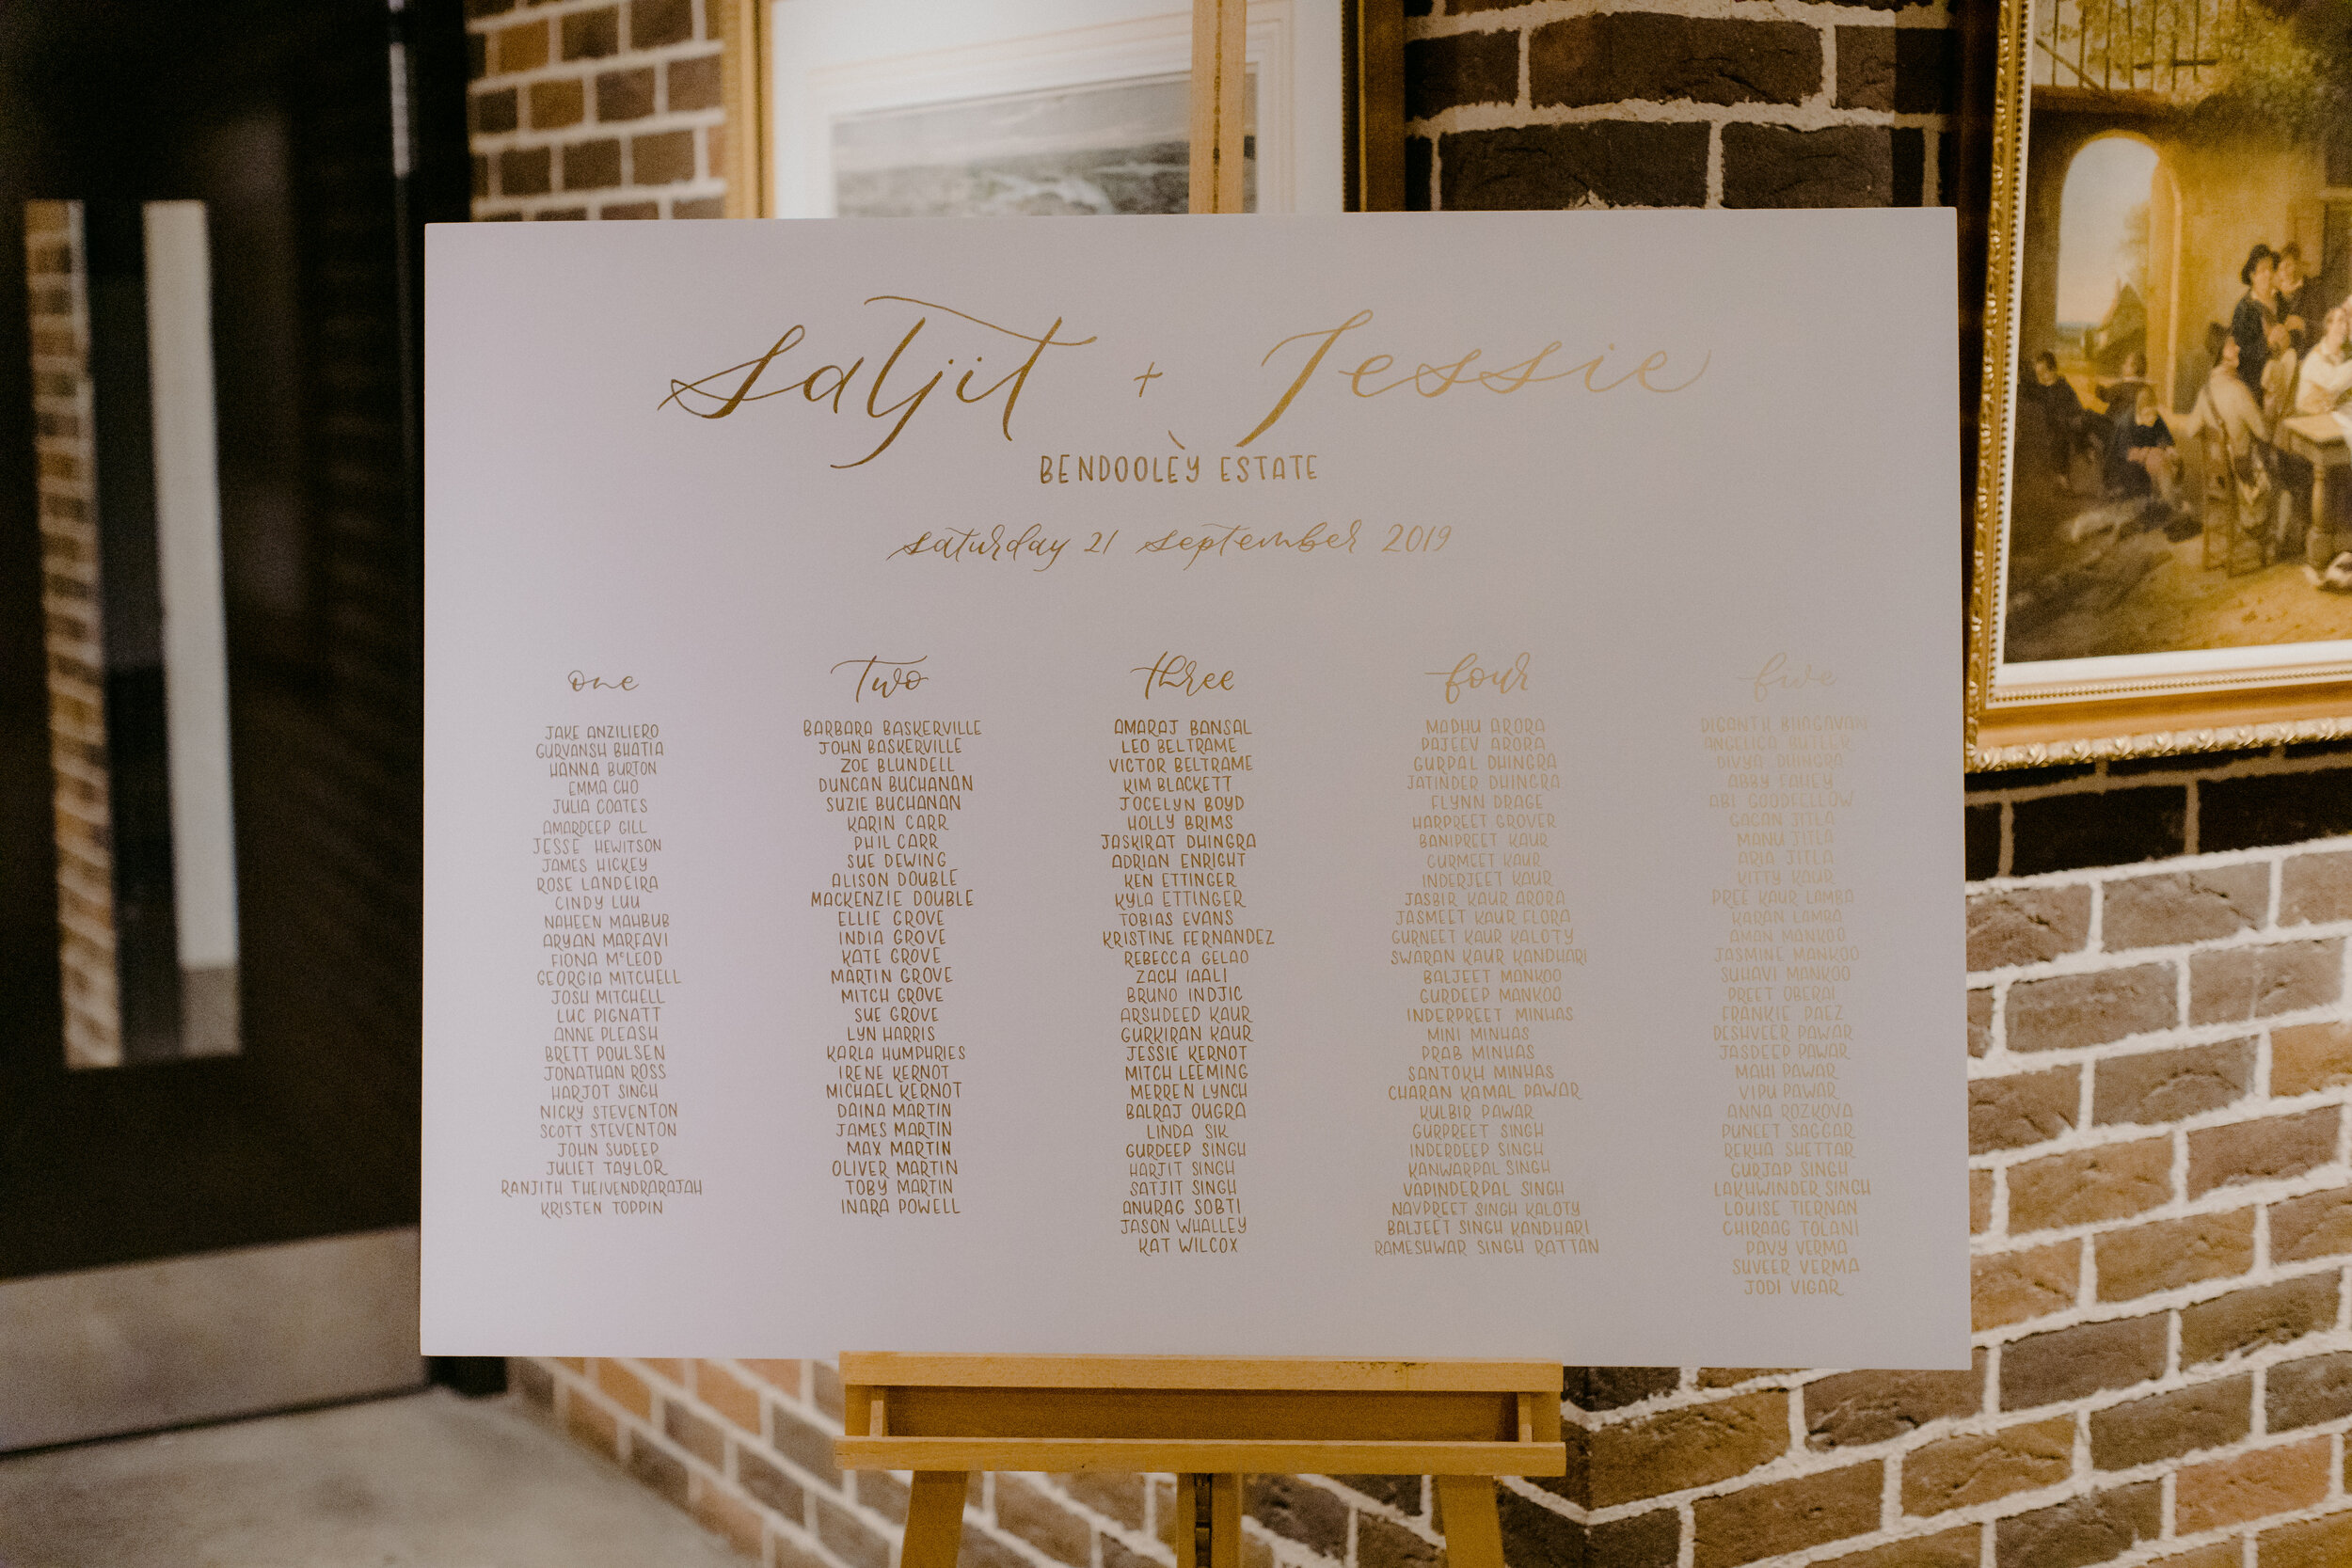 Satjit + Jessie
BENDOOLEY ESTATE
saturday 21 september 2019
one
JAKE ANZILIERO
GURVANSH BHATIA
HANNA BURTON
EMMA CHO
JULIA COATES
AMARDEEP GILL
JESSE HEWITSON
JAMES HICKEY
ROSE LANDEIRA
CINDY LUU
NAHEEN MAHBUB
ARYAN MARFAVI
FIONA McLEOD
GEORGIA MITCHELL
JOSH MITCHELL
LUC PIGNATT
ANNE PLEASH
BRETT POULSEN
JONATHAN ROSS
HARJOT SINGH
NICKY STEVENTON
SCOTT STEVENTON
JOHN SUDEEP
JULIET TAYLOR
RANJITH THEIVENDRARAJAH
KRISTEN TOPPIN
two
BARBARA BASKERVILLE
JOHN BASKERVILLE
ZOE BLUNDELL
DUNCAN BUCHANAN
SUZIE BUCHANAN
KARIN CARR
PHIL CARR
SUE DEWING
ALISON DOUBLE
MACKENZIE DOUBLE
ELLIE GROVE
INDIA GROVE
KATE GROVE
MARTIN GROVE
MITCH GROVE
SUE GROVE
LYN HARRIS
KARLA HUMPHRIES
IRENE KERNOT
MICHAEL KERNOT
DAINA MARTIN
JAMES MARTIN
MAX MARTIN
OLIVER MARTIN
TOBY MARTIN
INARA POWELL
three
AMARAJ BANSAL
LEO BELTRAME
VICTOR BELTRAME
KIM BLACKETT
JOCELYN BOYD
HOLLY BRIMS
JASKIRAT DHINGRA
ADRIAN ENRIGHT
KEN ETTINGER
KYLA ETTINGER
TOBIAS EVANS
KRISTINE FERNANDEZ
REBECCA GELAO
ZACH IAALI
BRUNO INDJIC
ARSHDEEP KAUR
GURKIRAN KAUR
JESSIE KERNOT
MITCH LEEMING
MERREN LYNCH
BALRAJ OUGRA
LINDA SIK
GURDEEP SINGH
HARJIT SINGH
SATJIT SINGH
ANURAG SOBTI
JASON WHALLEY
KAT WILCOX
four
MADHU ARORA
RAJEEV ARORA
GURPAL DHINGRA
JATINDER DHINGRA
FLYNN DRAGE
HARPREET GROVER
BANIPREET KAUR
GURMEET KAUR
INDERJEET KAUR
JASBIR KAUR ARORA
JASMEET KAUR FLORA
GURNEET KAUR KALOTY
SWARAN KAUR KANDHARI
BALJEET MANKOO
GURDEEP MANKOO
INDERPREET MINHAS
MINI MINHAS
PRAB MINHAS
SANTOKH MINHAS
CHARAN KAMAL PAWAR
KULBIR PAWAR
GURPREET SINGH
INDERDEEP SINGH
KANWARPAL SINGH
VAPINDERPAL SINGH
NAVPREET SINGH KALOTY
BALJEET SINGH KANDHARI
RAMESHWAR SINGH RATTAN
five
DIGANTH BHAGAVAN
ANGELICA BUTLER
DIVYA DHINGRA
ABBY FAHEY
ABI GOODFELLOW
GAGAN JITLA
MANU JITLA
ARIA JITLA
KITTY KAUR
PREE KAUR LAMBA
KARAN LAMBA
AMAN MANKOO
JASMINE MANKOO
SUHAVI MANKOO
PREET OBERAI
FRANKIE PAEZ
DESHVEER PAWAR
JASDEEP PAWAR
MAHI PAWAR
VIPU PAWAR
ANNA ROZKOVA
PUNEET SAGGAR
REKHA SHETTAR
GURJAP SINGH
LAKHWINDER SINGH
LOUISE TIERNAN
CHIRAAG TOLANI
PAVY VERMA
SUVEER VERMA
JODI VIGAR